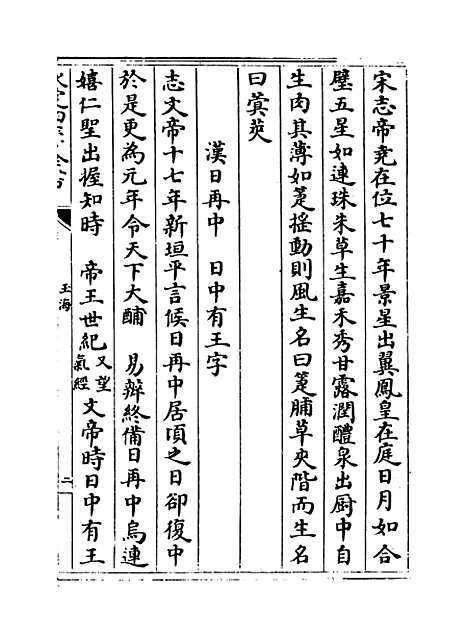 宋志帝堯在位七十年景星出翼鳳皇在庭日月如合
璧五星如連珠朱草生嘉禾秀甘露潤醴泉出厨中自
生肉其薄如箑搖動則風生名曰箑脯草夾階而生名
曰蓂莢
漢日再中　日中有王字
志文帝十七年新垣平言候日再中居頃之日卻復中
於是更為元年令天下大酺　易辨終備日再中烏連
嬉仁聖出握知時　帝王世紀又望氣經文帝時日中有王
玉海
二